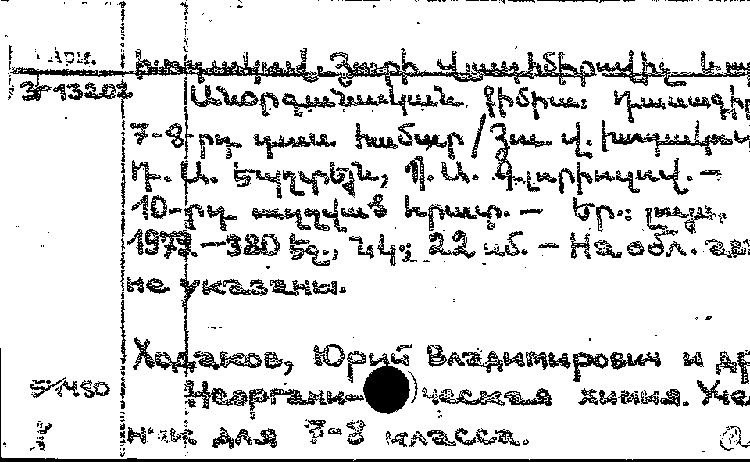 Арм.
Խոդակով, Յուրի Վլադիմիրովիչ
3-13202 Անօրգանական քիմիա: Դասագիր
7-8-րդ դաս. համար / Յու. Վ. Խոդակով
Դ. Ա. Էպշտեյն, Պ. Ա. Գլորիոզով. —
10-րդ ուղղված հրատ. — Եր.: Լույս,
1979. — 380 էջ., նկ.; 22 սմ. — На обл. авт.
не указаны.
Ходаков, Юрий Владимирович и др
51450 Неорганическая химия. Уче
н'ик для 7-8 класса.